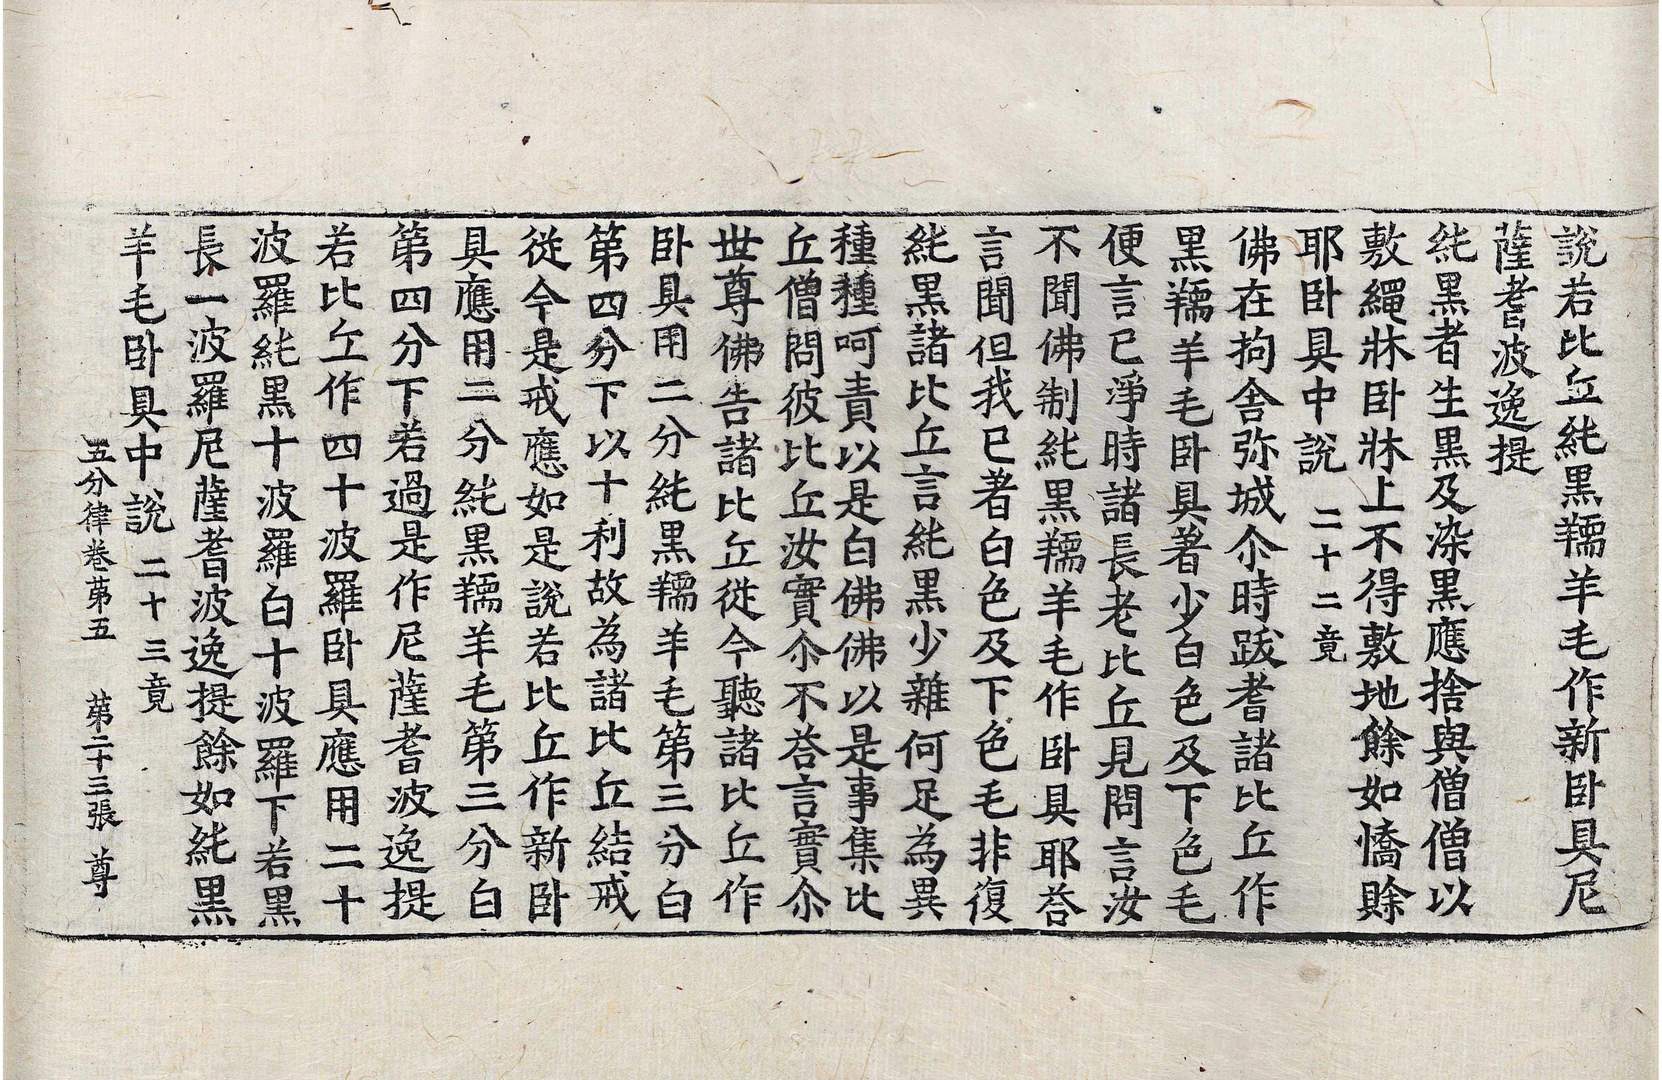 說若比丘純黑羺羊毛作新卧具尼
薩耆波逸提
純黑者生黑及染黑應捨與僧僧以
敷繩牀卧牀上不得敷地餘如憍賒
耶卧具中說 二十二竟
佛在拘舍弥城尒時跋耆諸比丘作
黑羺羊毛卧具著少白色及下色毛
便言已淨時諸長老比丘見問言汝
不聞佛制純黑羺羊毛作卧具耶荅
言聞但我已著白色及下色毛非復
純黑諸比丘言純黑少雜何足為異
種種呵責以是白佛佛以是事集比
丘僧問彼比丘汝實尒不荅言實尒
世尊佛告諸比丘從今聽諸比丘作
卧具用二分純黑羺羊毛第三分白
第四分下以十利故為諸比丘結戒
從今是戒應如是說若比丘作新卧
具應用二分純黑羺羊毛第三分白
第四分下若過是作尼薩耆波逸提
若比丘作四十波羅卧具應用二十
波羅純黑十波羅白十波羅下若黑
長一波羅尼薩耆波逸提餘如純黑
羊毛卧具中說 二十三竟
五分律卷第五 第二十三張 尊